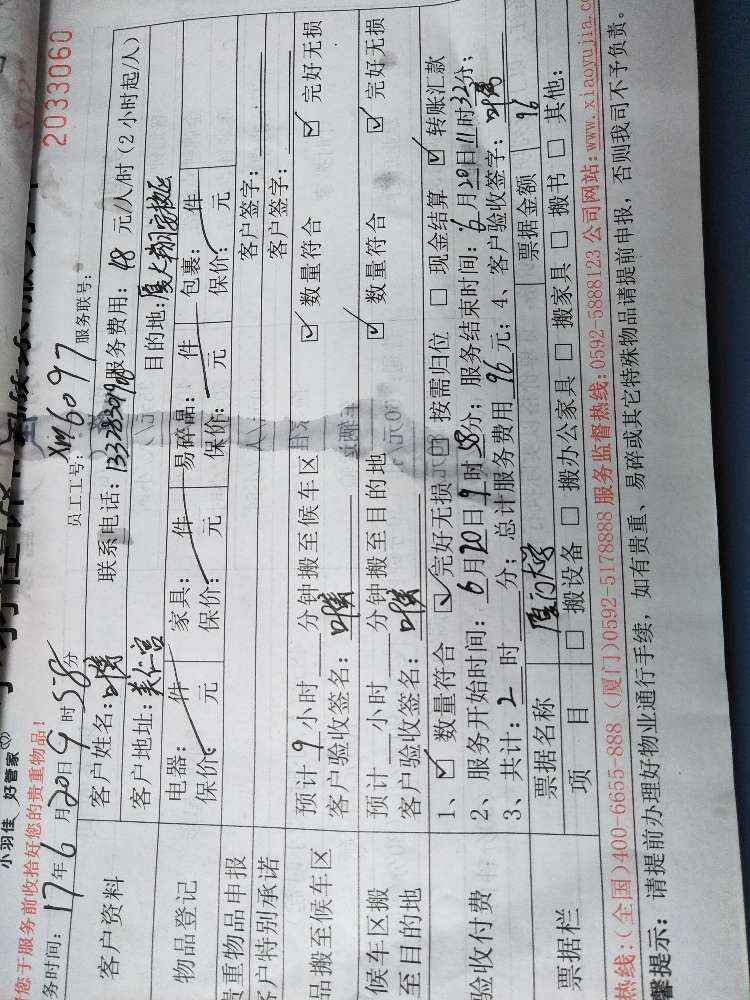 小羽佳 好管家
2033060
您于服务前收拾好您的贵重物品!
务时间: 17年6月20日9时58分 员工工号: XM6097 服务联号:
客户资料
客户姓名: 联系电话: 服务费用: 48元/人/时(2小时起/人)
客户地址: 目的地:
物品登记
电器: 件 家具: 件 易碎品: 件 包裹: 件
保价: 元 保价: 元 保价: 元 保价: 元
贵重物品申报 客户签字:
客户特别承诺 客户签字:
品搬至候车区
预计9小时 分钟搬至候车区 ☑数量符合 ☑完好无损
客户验收签名:
候车区搬至目的地
预计 小时 分钟搬至目的地 ☑数量符合 ☑完好无损
客户验收签名:
验收付费
1、☑数量符合 ☑完好无损 □按需归位 □现金结算 ☑转账汇款
2、服务开始时间: 6月20日9时58分; 服务结束时间: 6月20日11时32分;
3、共计: 2时 分; 总计服务费用96元; 4、客户验收签字:
票据栏
票据名称 厦门大学 票据金额 96
项目 □搬设备 □搬办公家具 □搬家具 □搬书 □其他:
热线:(全国)400-6655-888 (厦门)0592-5178888 服务监督热线:0592-5888123 公司网站:www.xiaoyujia.co
馨提示: 请提前办理好物业通行手续,如有贵重、易碎或其它特殊物品请提前申报,否则我司不予负责。